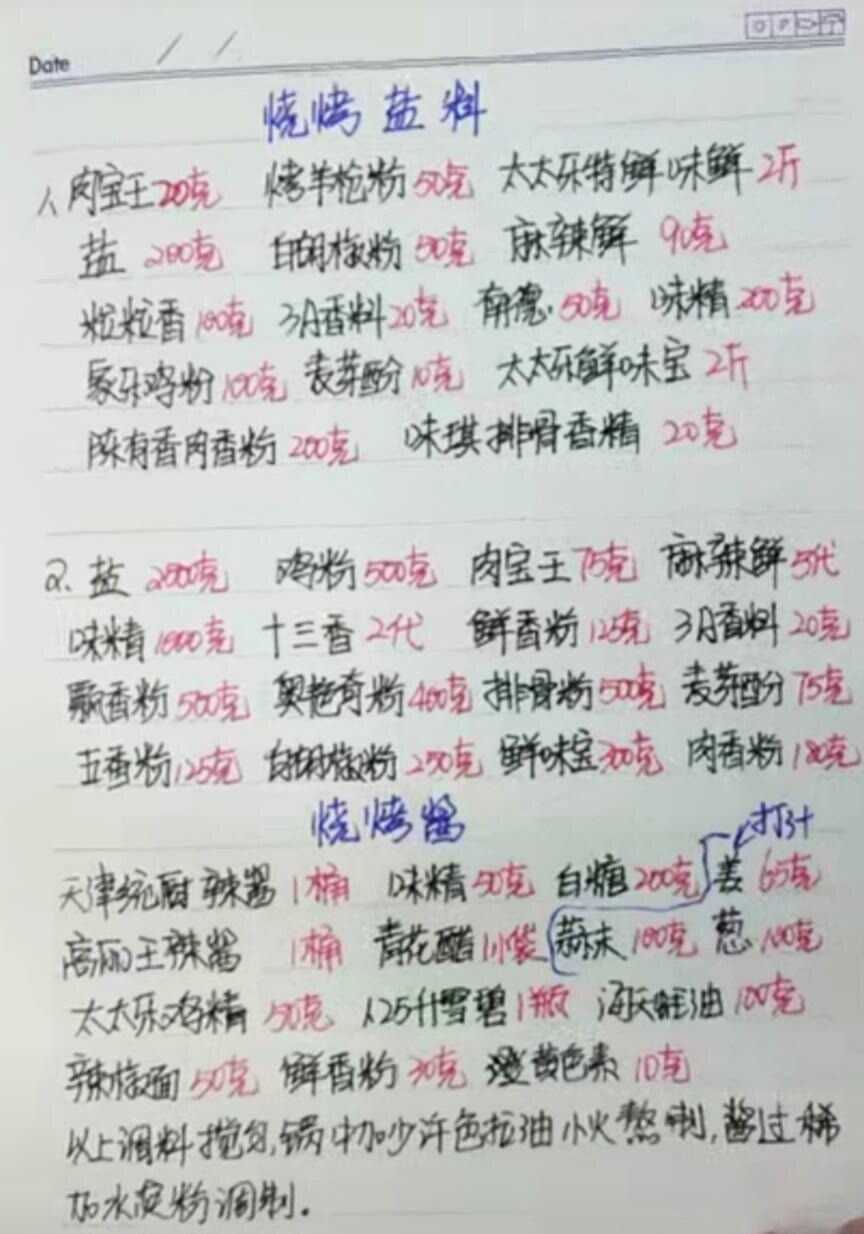 Date / /
烧烤盐料
1、肉宝王20克 烤羊枪粉50克 太太乐特鲜味鲜2斤
盐 200克 白胡椒粉50克 麻辣鲜 90克
粒粒香100克 3A香料20克 有德 50克 味精200克
家乐鸡粉100克 麦芽酚10克 太太乐鲜味宝2斤
陈有香肉香粉200克 味琪排骨香精 20克
2、盐 200克 鸡粉500克 肉宝王75克 麻辣鲜5代
味精1000克 十三香2代 鲜香粉125克 3A香料20克
飘香粉500克 奥艳奇粉400克 排骨粉500克 麦芽酚75克
五香粉125克 白胡椒粉250克 鲜味宝300克 肉香粉180克
烧烤酱 打汁
天津统厨辣酱1桶 味精50克 白糖200克 姜65克
高丽王辣酱 1桶 青花醋1小袋 蒜末100克 葱100克
太太乐鸡精50克 1.25升雪碧1瓶 海天蚝油100克
辣椒面50克 鲜香粉30克 橙黄色素10克
以上调料搅匀,锅中加少许色拉油小火熬制,酱过稀
加水淀粉调制.